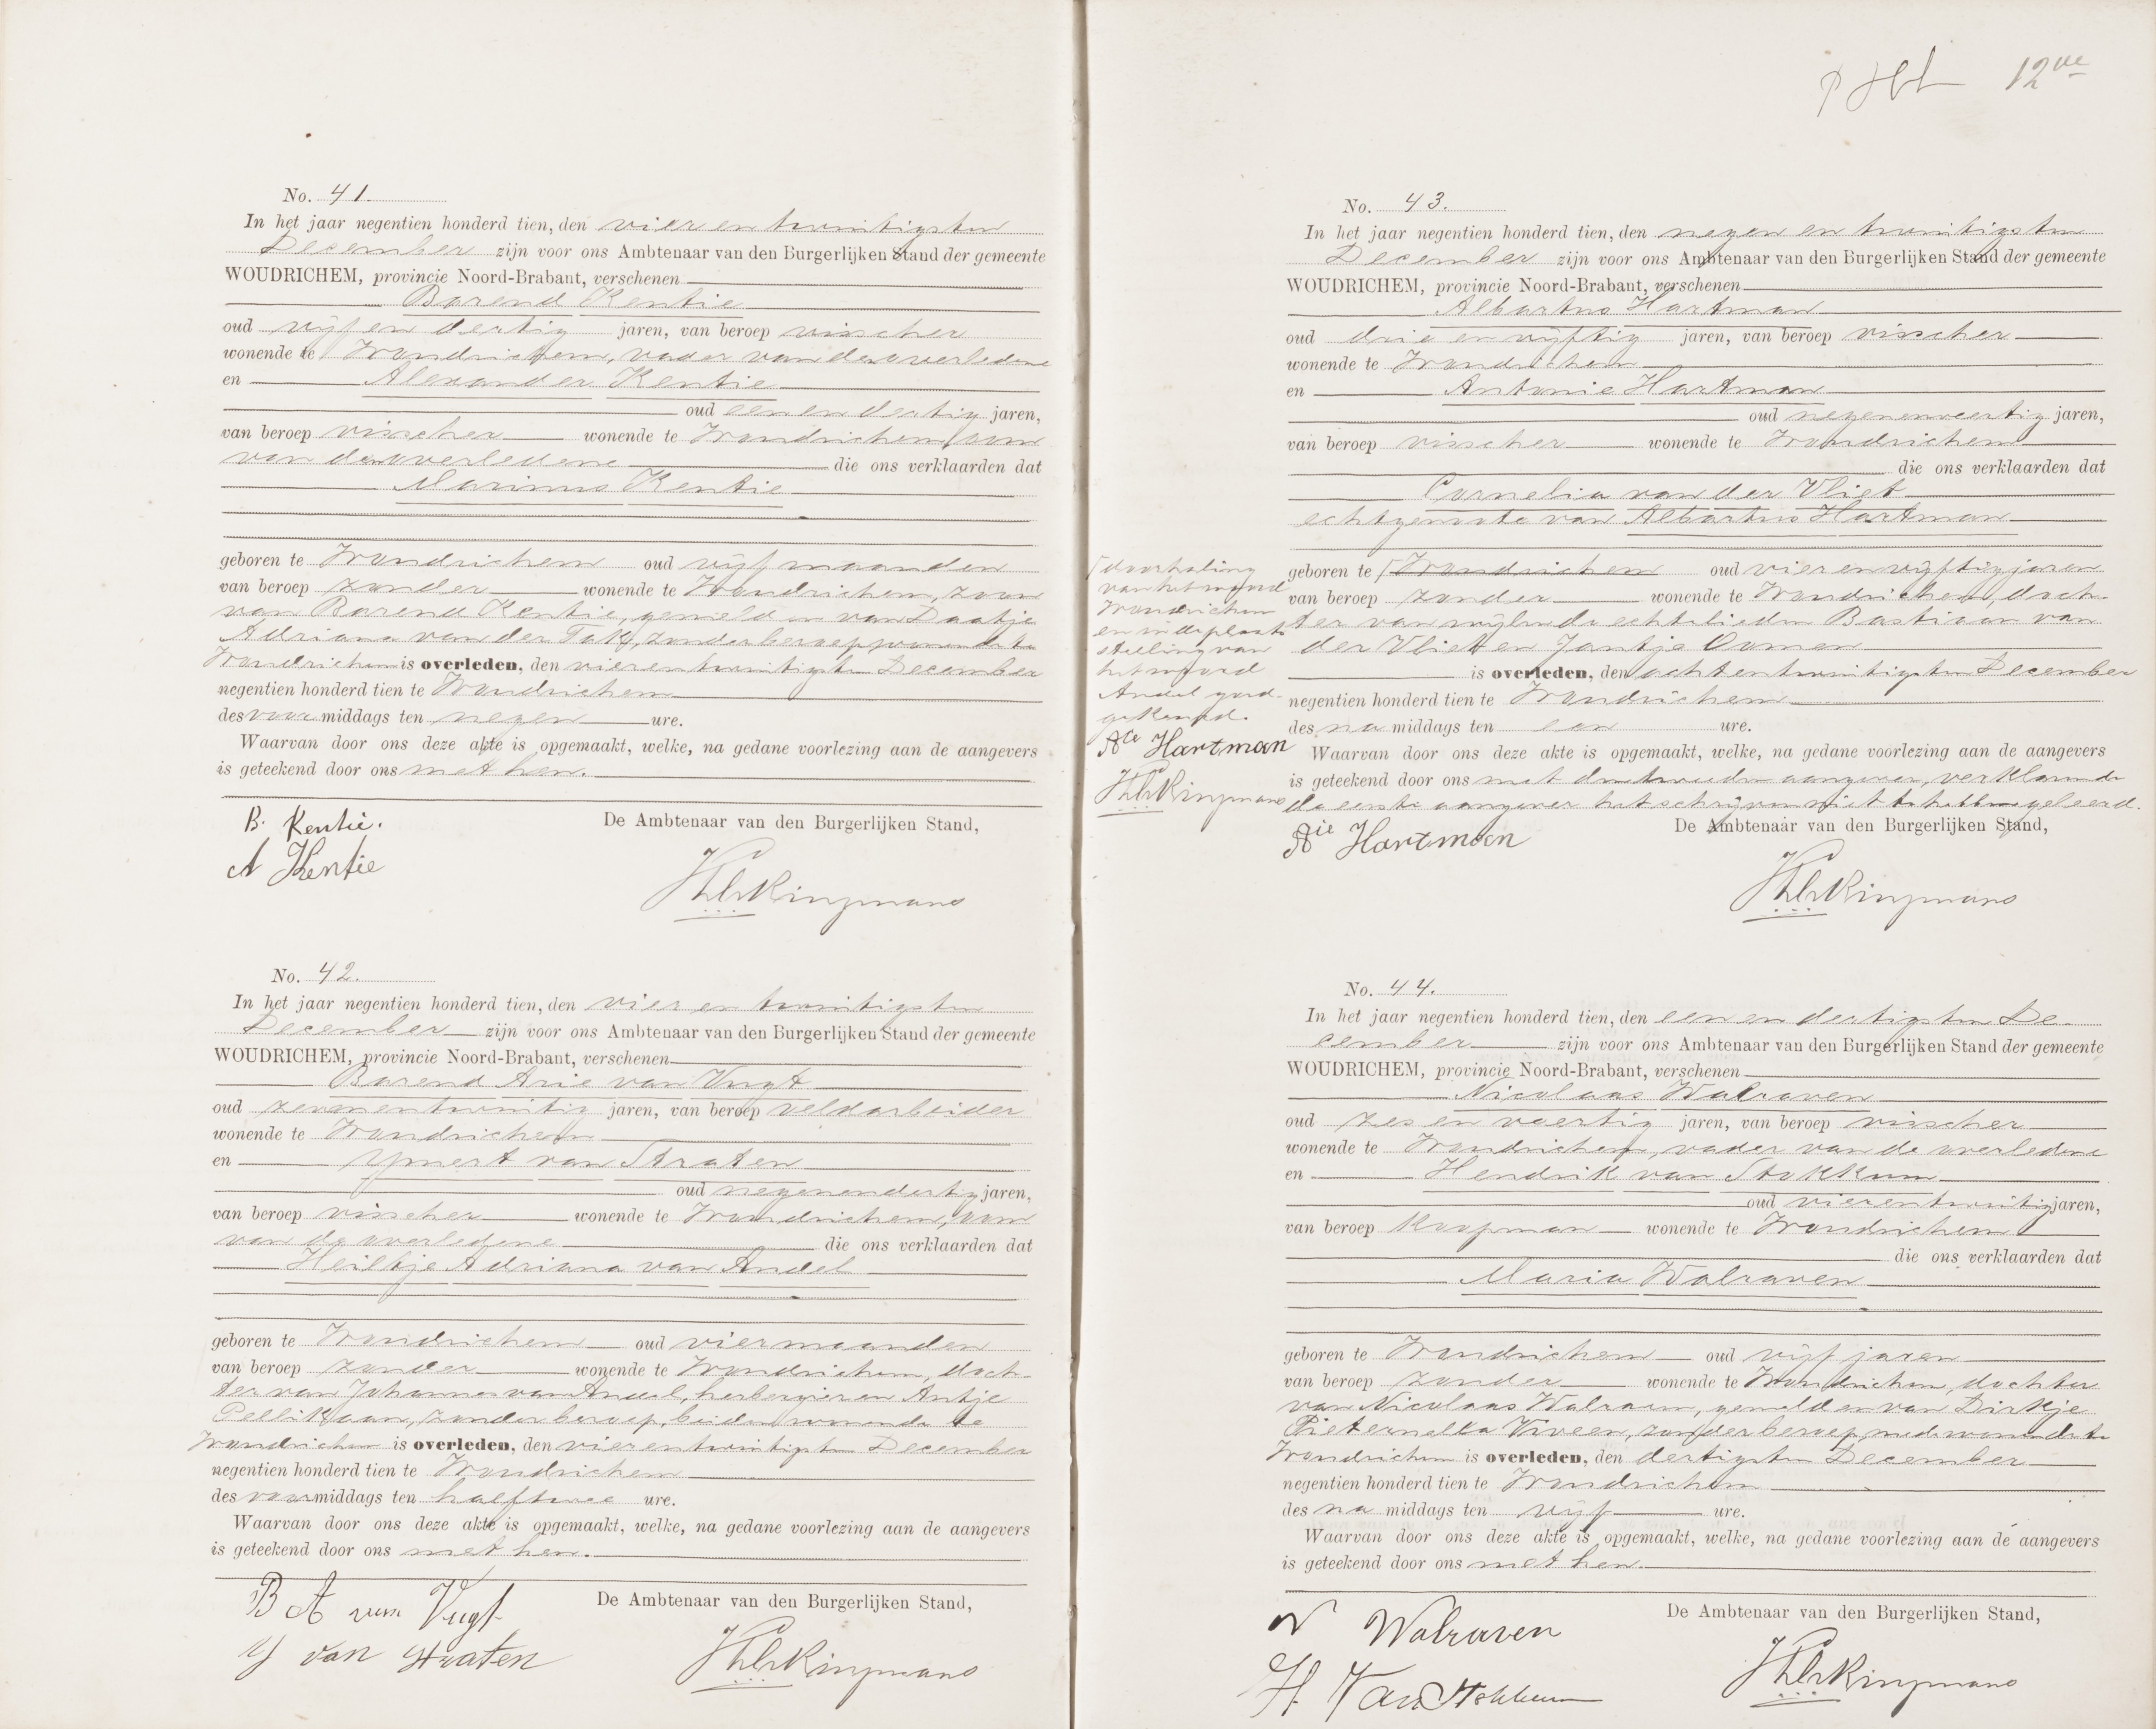 No. 41.
In het jaar negentien honderd tien, den vier en twintigsten
December zijn voor ons Ambtenaar van den Burgerlijken Stand der gemeente
WOUDRICHEM, provincie Noord-Brabant, verschenen
Barend Kentie
oud vijf en dertig jaren, van beroep visscher
wonende te Woudrichem, vader van den overledene
en Alexander Kentie
oud een en dertig jaren,
van beroep visscher wonende te Woudrichem, oom
van den overledene die ons verklaarden dat
Marinus Kentie
geboren te Woudrichem oud vijf maanden
van beroep zonder wonende te Woudrichem, zoon
van Barend Kentie, gemeld en van Daatje
Adriana van der Tak, zonder beroep, wonende te
Woudrichem is overleden, den vierentwintigsten December
negentien honderd tien te Woudrichem
des voor middags ten negen ure.
Waarvan door ons deze akte is opgemaakt, welke, na gedane voorlezing aan de aangevers
is geteekend door ons met hen.
B. Kentie.
De Ambtenaar van den Burgerlijken Stand,
A Kentie
No. 42.
In het jaar negentien honderd tien, den vier en twintigsten
December zijn voor ons Ambtenaar van den Burgerlijken Stand der gemeente
WOUDRICHEM, provincie Noord-Brabant, verschenen
Barend Arie van Vugt
oud zevenentwintig jaren, van beroep veldarbeider
wonende te Woudrichem
en IJmert van Straten
oud negenendertig jaren,
van beroep visscher wonende te Woudrichem, oom
van de overledene die ons verklaarden dat
Heiltje Adriana van Andel
geboren te Woudrichem oud vier maanden
van beroep zonder wonende te Woudrichem, doch-
ter van Johannes van Andel, herbergier en Antje
Pellikaan, zonder beroep, beiden wonende te
Woudrichem is overleden, den vierentwintigsten December
negentien honderd tien te Woudrichem
des voormiddags ten half twee ure.
Waarvan door ons deze akte is opgemaakt, welke, na gedane voorlezing aan de aangevers
is geteekend door ons met hen.
B A van Vugt
De Ambtenaar van den Burgerlijken Stand,
IJ van Straaten
12ve
No. 43.
In het jaar negentien honderd tien, den negen en twintigsten
December zijn voor ons Ambtenaar van den Burgerlijken Stand der gemeente
WOUDRICHEM, provincie Noord-Brabant, verschenen
Albartus Hartman
oud drie en vijftig jaren, van beroep visscher
wonende te Woudrichem
en Antonie Hartman
oud negenenveertig jaren,
van beroep visscher wonende te Woudrichem
die ons verklaarden dat
Cornelia van der Vliet
echtgenoote van Albartus Hartman
geboren te Woudrichem oud vier en vijftig jaren
van beroep zonder wonende te Woudrichem, doch-
ter van wijlen de echtelieden Bastiaan van
der Vliet en Jantje
is overleden, den achtentwintigsten December
negentien honderd tien te Woudrichem
des na middags ten een ure.
Waarvan door ons deze akte is opgemaakt, welke, na gedane voorlezing aan de aangevers
is geteekend door ons met den tweeden aangever, verklarende
de eerste aangever het schrijven niet te hebben geleerd.
Aie Hartman
De Ambtenaar van den Burgerlijken Stand,
doorhaling
van het woord
Woudrichem
en in de plaats
stelling van
het woord
Andel goed-
gekeurd.
Aie Hartman
No. 44.
In het jaar negentien honderd tien, den een en dertigsten De-
cember zijn voor ons Ambtenaar van den Burgerlijken Stand der gemeente
WOUDRICHEM, provincie Noord-Brabant, verschenen
Nicolaas Walraven
oud zes en veertig jaren, van beroep visscher
wonende te Woudrichem, vader van de overledene
en Hendrik van Stokkum
oud vierentwintig jaren,
van beroep Koopman wonende te Woudrichem
die ons verklaarden dat
Maria Walraven
geboren te Woudrichem oud vijf jaren
van beroep zonder wonende te Woudrichem, dochter
van Nicolaas Walraven, gemeld en van Dirkje
Pieternella Viveen, zonder beroep, mede wonende te
Woudrichem is overleden, den dertigsten December
negentien honderd tien te Woudrichem
des na middags ten vijf ure.
Waarvan door ons deze akte is opgemaakt, welke, na gedane voorlezing aan de aangevers
is geteekend door ons met hen.
N Walraven
De Ambtenaar van den Burgerlijken Stand,
H. Van Stokkum